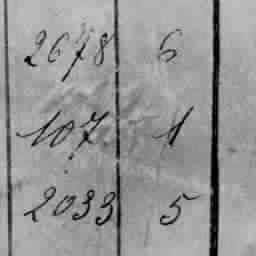 2678 6
107 1
2033 5